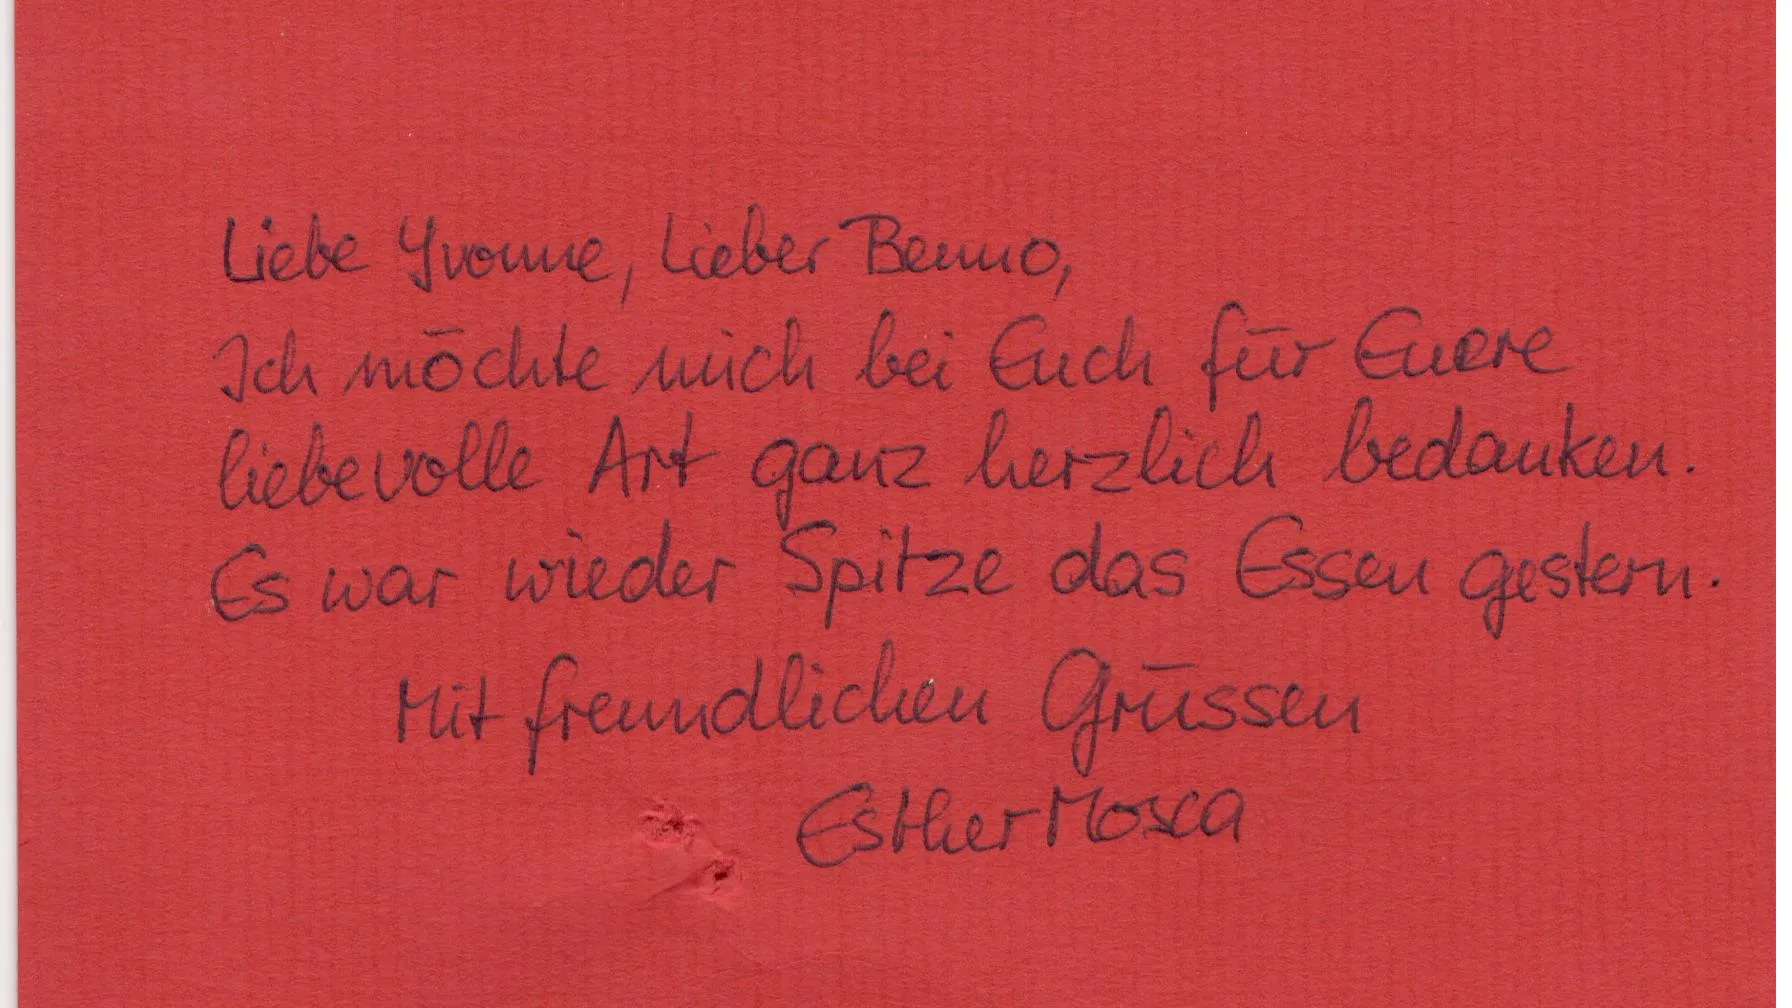 Liebe Yvonne, Lieber Benno,
Ich möchte mich bei Euch für Euere
liebevolle Art ganz herzlich bedanken.
Es war wieder Spitze das Essen gestern.
Mit freundlichen Grüssen
Esther Mosca